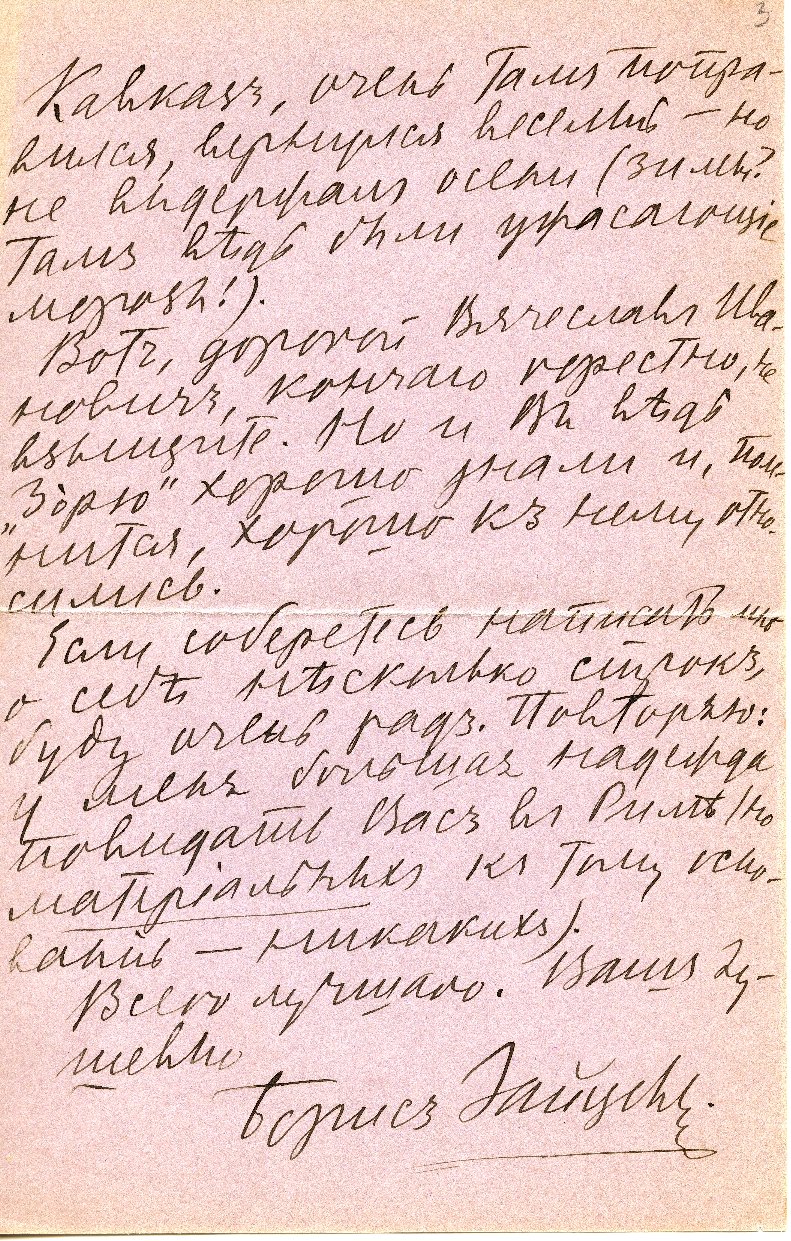 3
Кавказъ, очень тамъ попра-
вился, вернулся веселый – но
не выдержалъ осени (зимы?
Тамъ вѣдь были ужасающіе
морозы!).
Вотъ, дорогой Вячеславъ Ива-
новичъ, кончаю горестно, не
взыщите. Но и Вы вѣдь
„Зорю" хорошо знали и, пом-
нится, хорошо къ нему отно-
сились.
Если соберетесь написать мнѣ
о себѣ нѣсколько строкъ,
буду очень радъ. Повторяю:
у меня большая надежда
повидать Васъ въ Римѣ (но
матеріальныхъ къ тому осно-
ваній – никакихъ).
Всего лучшаго. Вашъ ду-
шевно
Борисъ Зайцевъ.